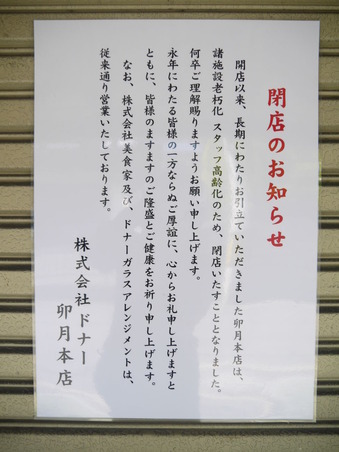 閉店のお知らせ
開店以来、長期にわたりお引立ていただきました卯月本店は、
諸施設老朽化 スタッフ高齢化のため、閉店いたすこととなりました。
何卒ご理解賜りますようお願い申し上げます。
永年にわたる皆様の一方ならぬご厚誼に、心からお礼申し上げますと
ともに、皆様のますますのご隆盛とご健康をお祈り申し上げます。
なお、株式会社美食家及び、ドナーガラスアレンジメントは、
従来通り営業いたしております。
株式会社ドナー
卯月本店